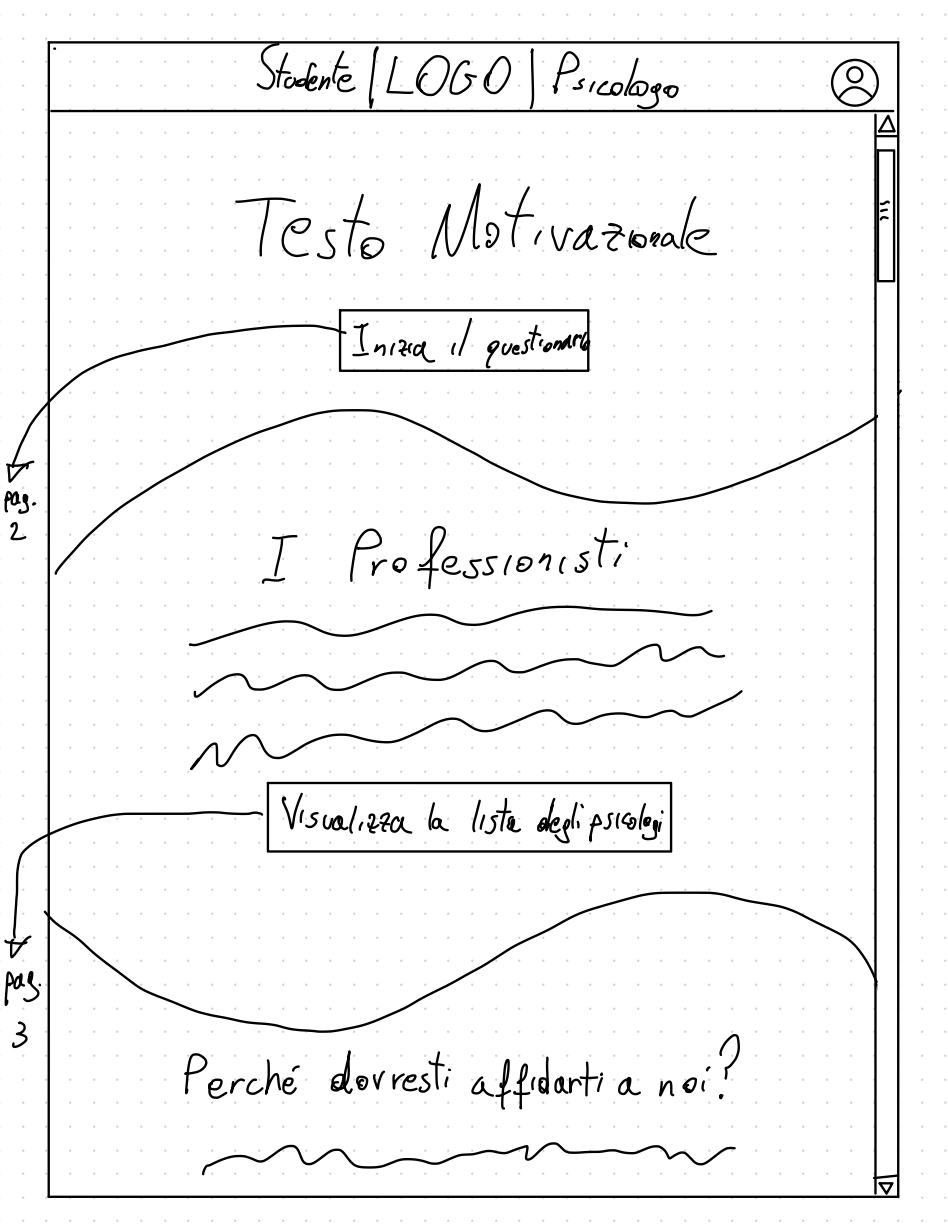 Studente | LOGO | Psicologo
Testo Motivazionale
Inizia il questionario
pag.
2
I Professionisti
Visualizza la lista degli psicologi
pag.
3
Perché dovresti affidarti a noi?